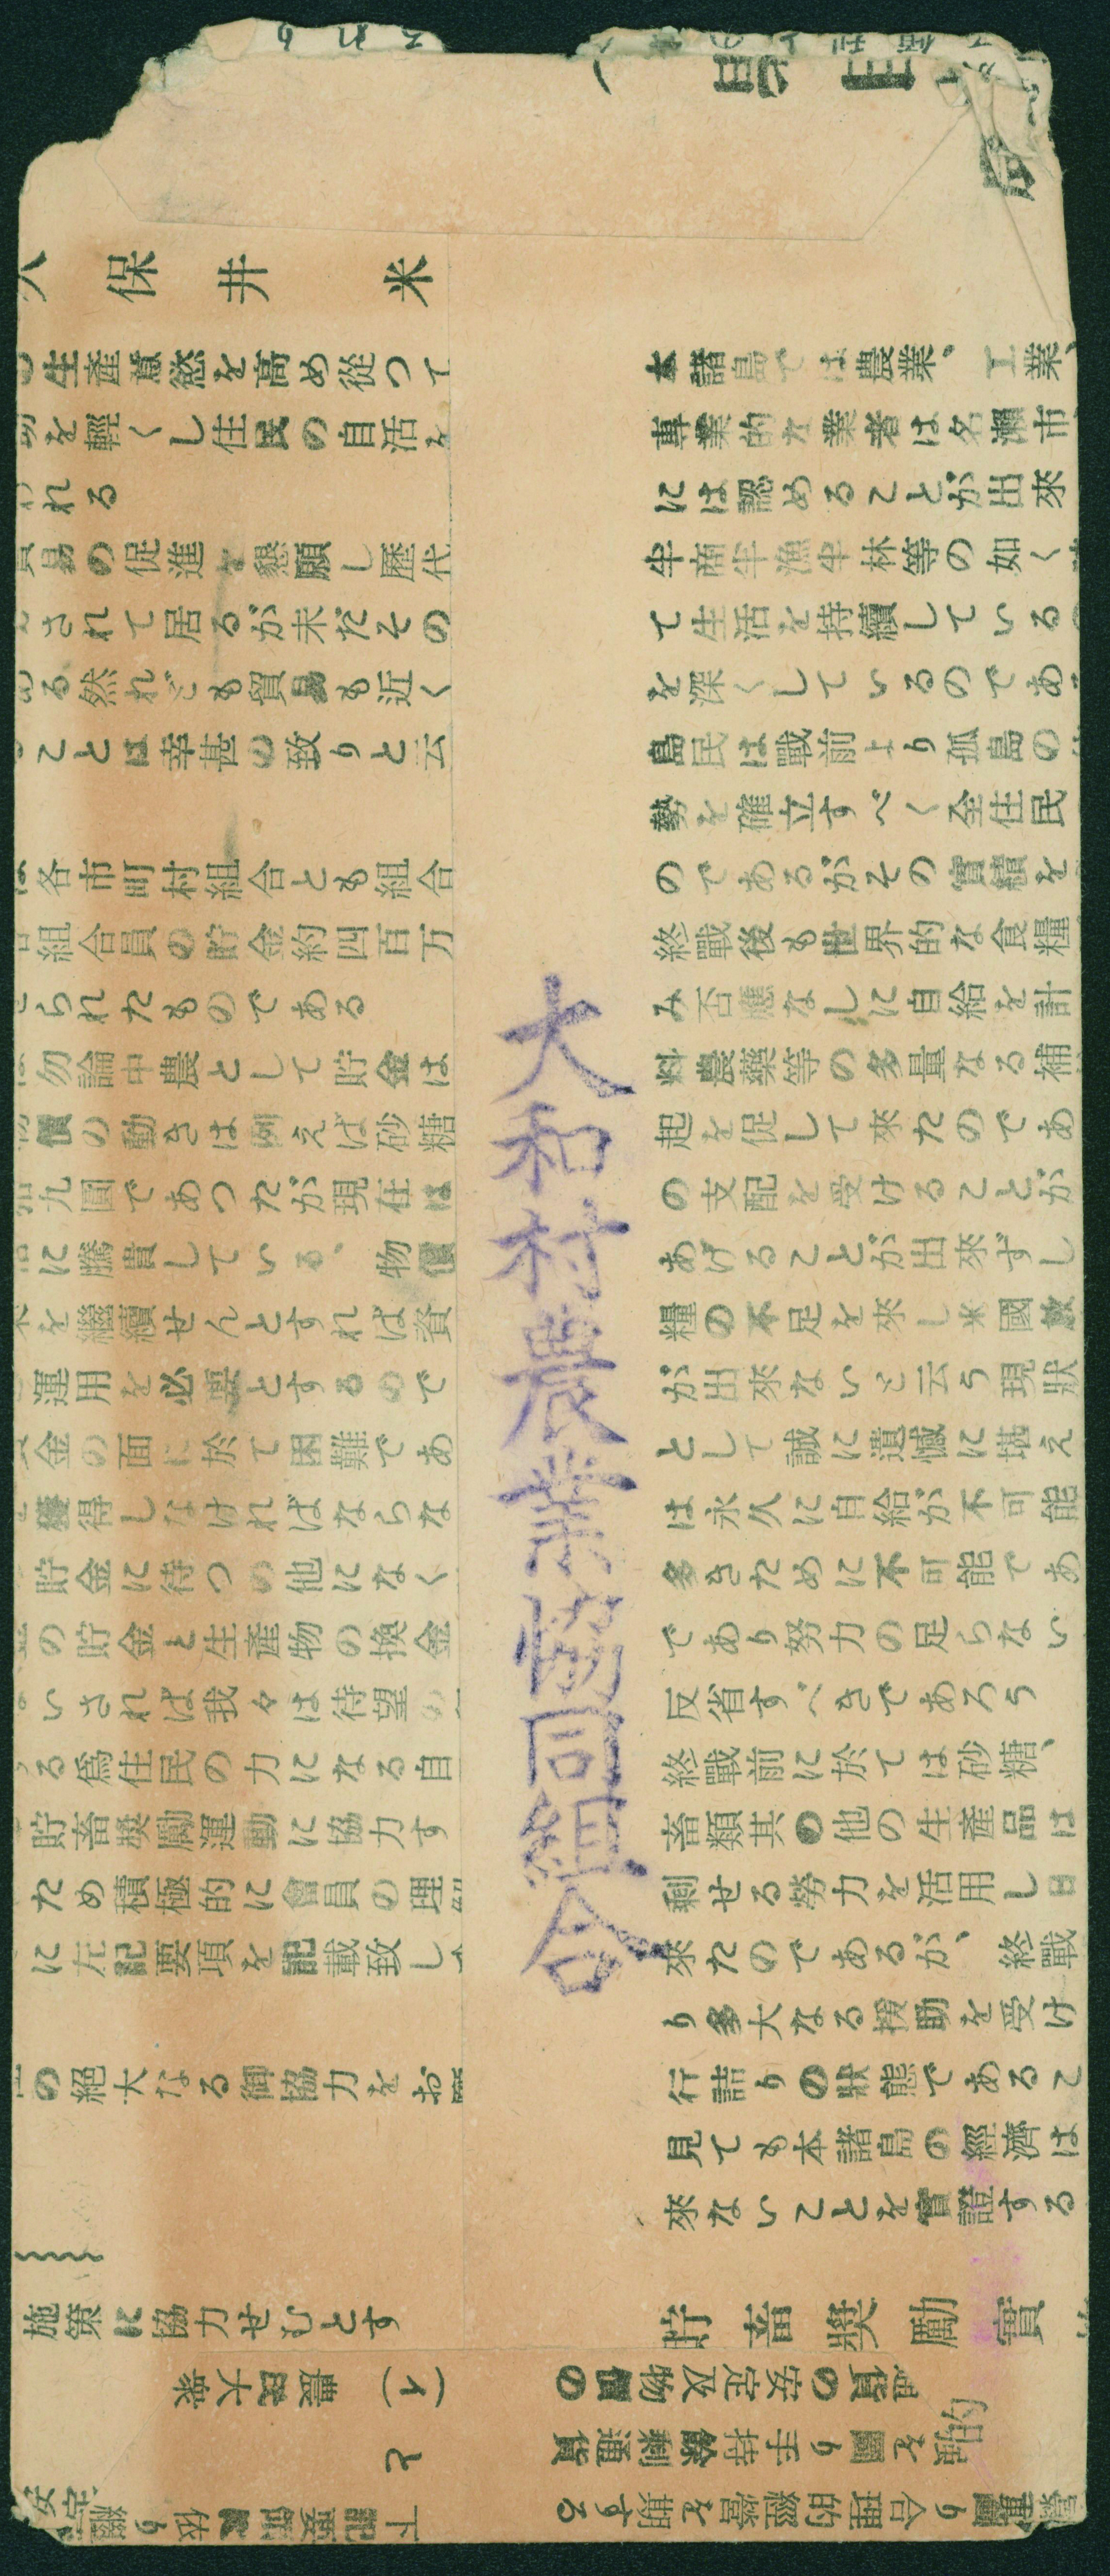 大和村農業協同組合
保井 米
生產意慾を高め從つて
を輕くし住民の自活を
れる
の促進を懇願し歷代
されて居るが未だその
る然れども貿易も近く
ことは幸甚の致りと云
各市町村組合とも組合
組合員の貯金約四百万
られたものである
勿論中農として貯金は
價の動きは例えば砂糖
九圓であつたが現在は
に騰貴している、物價
を繼續せんとすれば資
運用を必要とするので
金の面に於て困難であ
獲得しなければならな
貯金に待つの他になく
の貯金と生產物の換金
いされば我々は待望の
る爲住民の力になる自
貯畜獎勵運動に協力す
ため積極的に會員の理
に左記要項を記載致し
の絕大なる御協力をお
施策に協力せむとす
本諸島では農業、工業、
專業的な業者は名瀨市
には認めることが出來
半商半漁半林等の如く
て生活を持續している
を深くしているのであ
島民は戰前より孤島の
勢を確立すべく全住民
のであるがその實績を
終戰後も世界的な食糧
み否應なしに自給を計
料農藥等の多量なる補
起を促して來たのであ
の支配を受けることが
あげることが出來ずし
糧の不足を來し米國
が出來ないと云う現狀
として誠に遺憾に堪え
は永久に自給が不可能
多きために不可能であ
であり努力の足らない
反省すべきであろう
終戰前に於ては砂糖、
畜類其の他の生產品は
剩せる勞力を活用し
來たのであるが、終戰
り多大なる援助を受け
行詰りの狀態であるこ
見ても本諸島の經濟は
來ないことを實證する
貯畜獎勵實
通貨の安定及物價の
を圖り手持餘剩通貨
り合理的經營を期する
(イ) 農民大衆
と
下記要領に依り
的